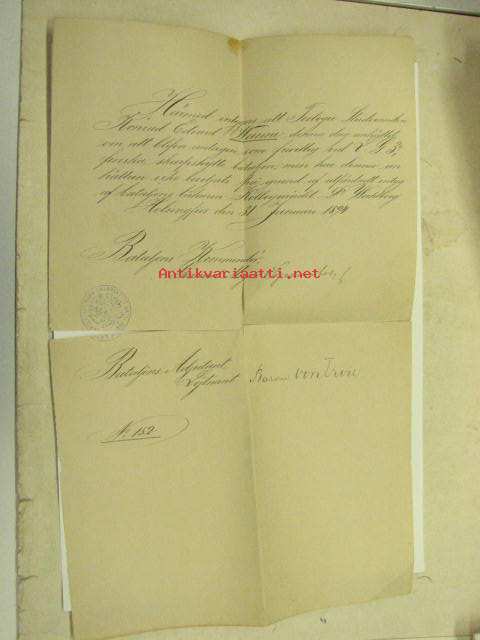 Härmed intygas att Teologie Studeranden
Konrad Edvard Warén denna dag anhållit
om att blifva antagen som frivillig vid L. G. 3je
finska skarpskytte bataljon, men har denna an-
hållan icke bifallits på grund af utfärdadt intyg
af bataljons läkaren Kollegirådet Dr
Helsingfors den 31 Januari 1894
Bataljons Kommendör,
Antikvariaatti.net
Bataljons Adjutant,
Löjtnant Baron von Troil
N: 152.